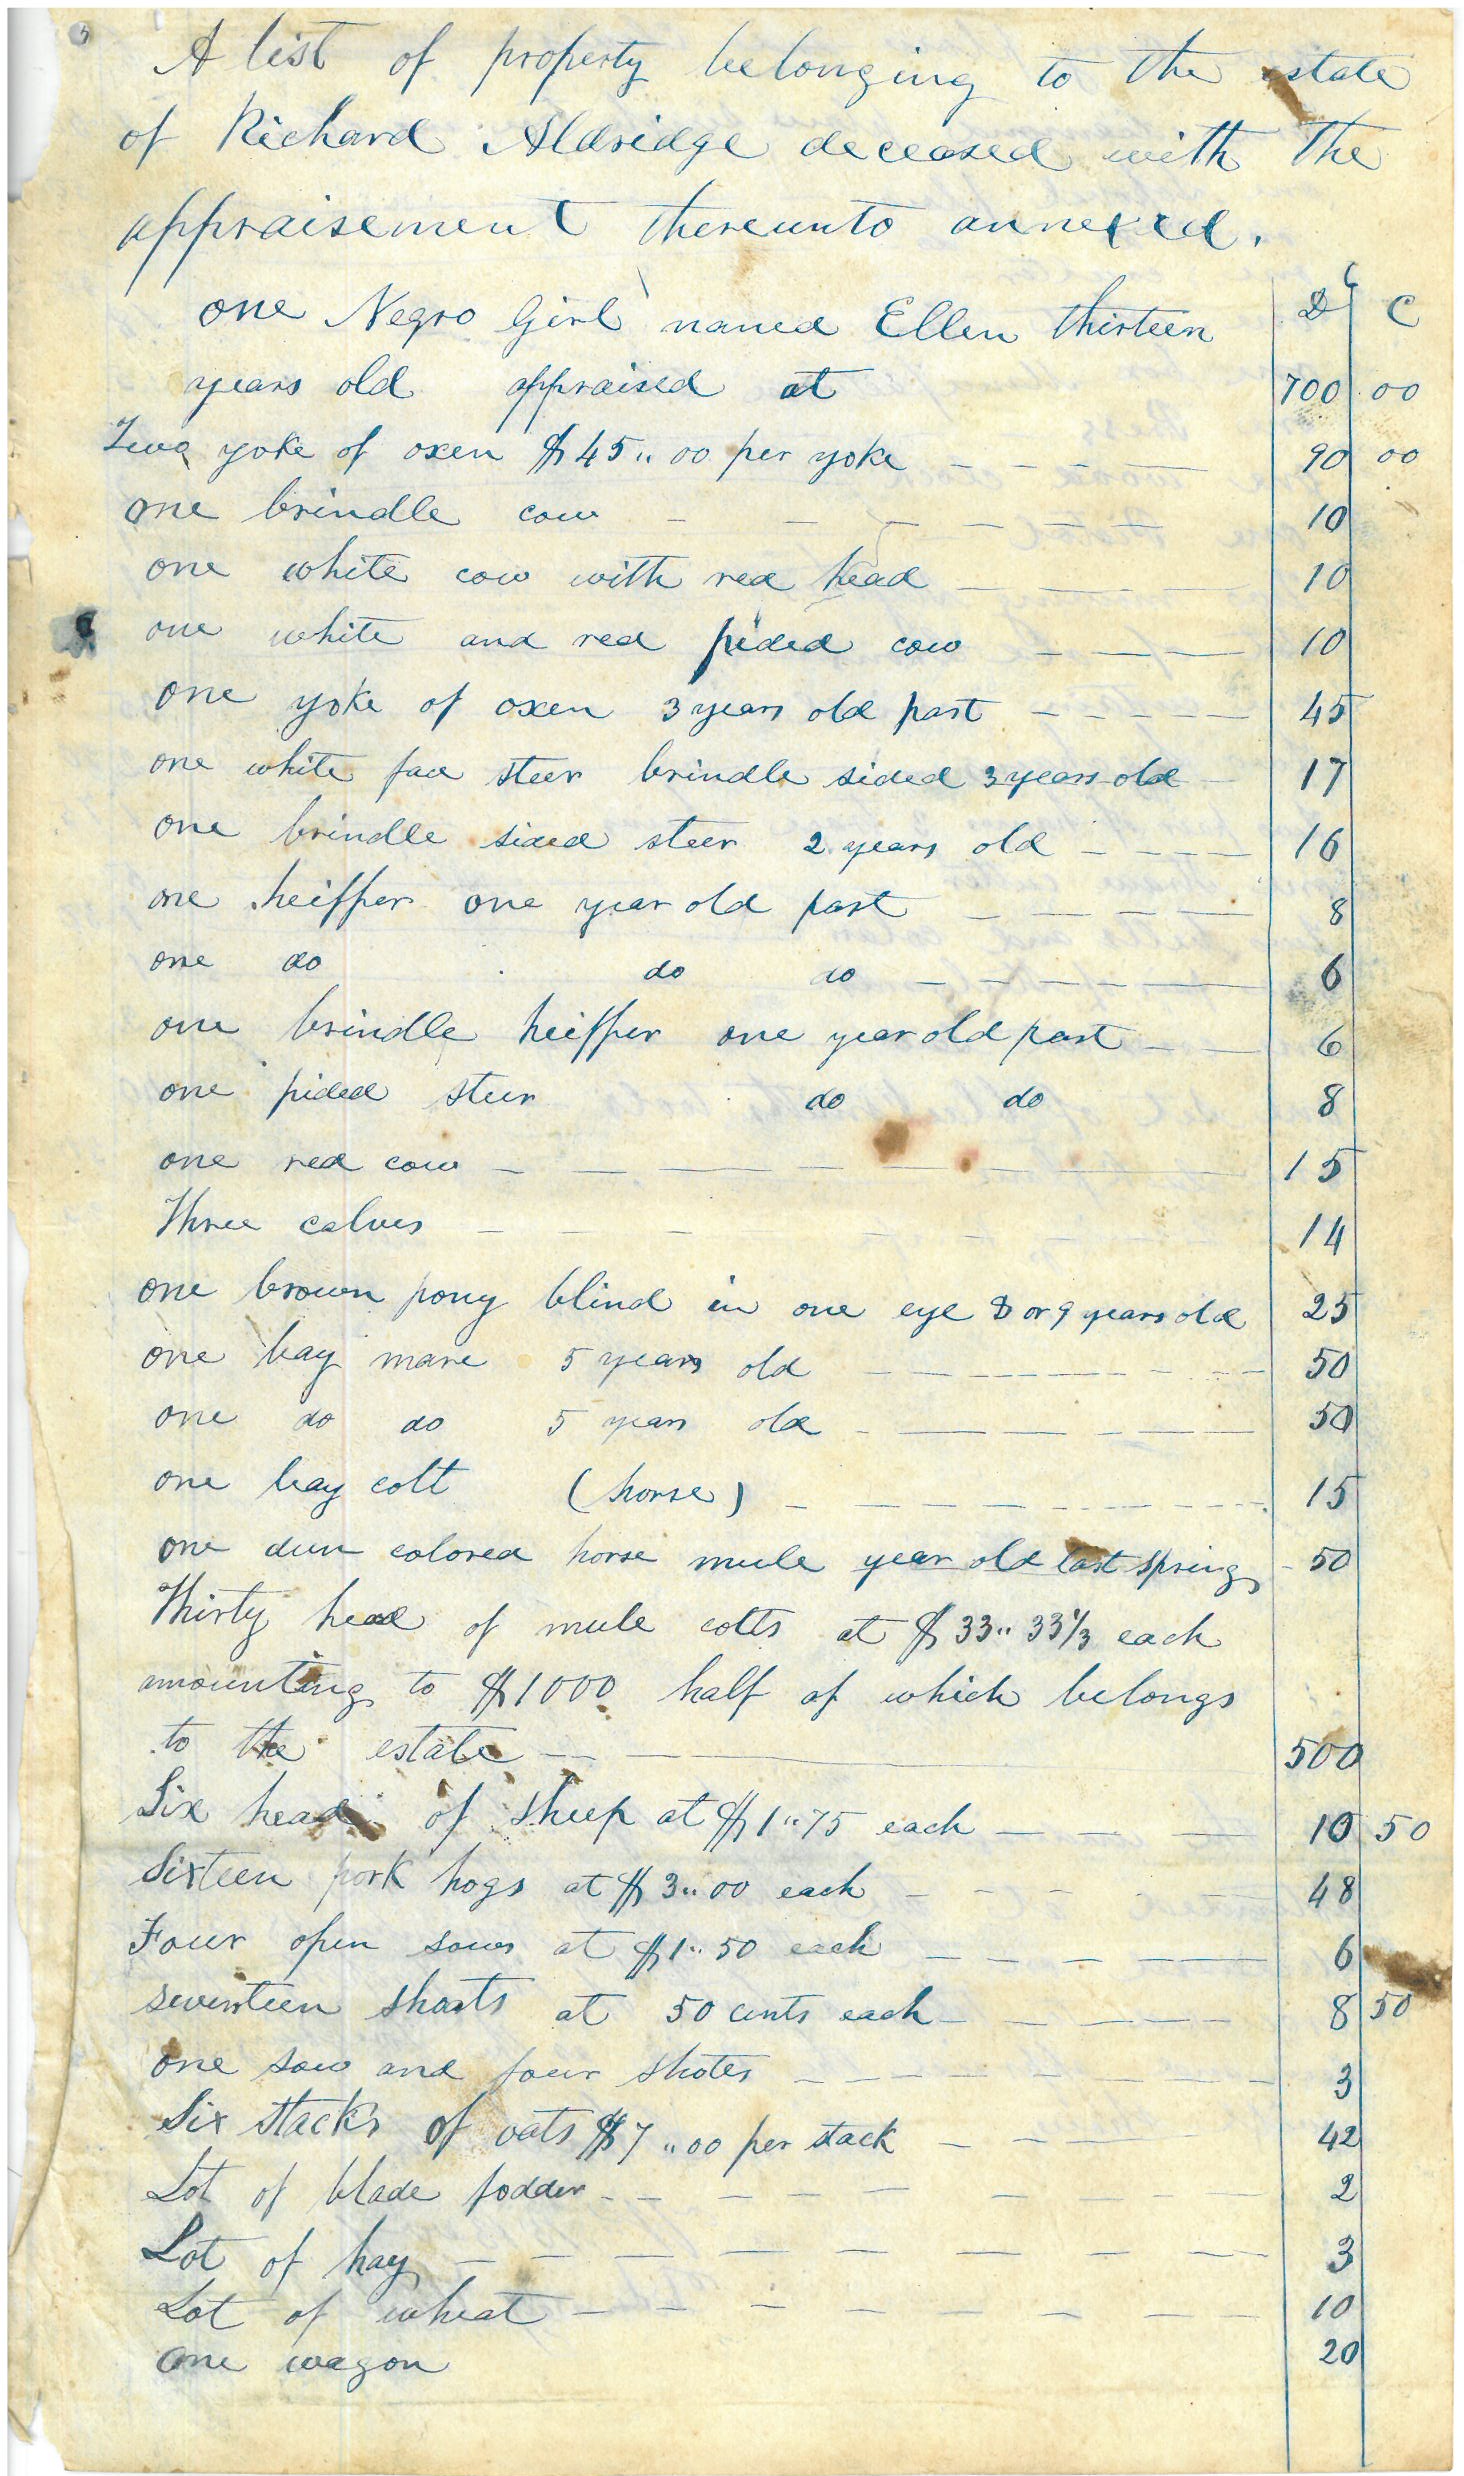 A list of property belonging to the estate
of Richard Aldridge deceased with the
appraisement thereunto annexed.
D C
one Negro Girl named Ellen thirteen
years old appraised at 700 00
Two yoke of oxen $45,,00 per yoke 90 00
one brindle cow 10
one white cow with red head 10
one white and red pided cow 10
one yoke of oxen 3 years old past 45
one white face steer brindle sided 3 years old 17
one brindle sided steer 2 years old 16
one heiffer one year old past 8
one do do do 6
one brindle heiffer one year old past 6
one pided steer do do 8
one red cow 15
Three calves 14
one brown pony blind in one eye 8 or 9 years old 25
one bay mare 5 years old 50
one do do 5 years old 50
one bay colt (horse) 15
one dun colored horse mule year old last spring 50
Thirty head of mule colts at $33,,33 1/3 each
amounting to $1000 half of which belongs
to the estate 500
Six head of sheep at $1,,75 each 10 50
Sixteen pork hogs at $3,,00 each 48
Four open sows at $1,,50 each 6
seventeen shoats at 50 cents each 8 50
one sow and four shotes 3
Six stacks of oats $7,,00 per stack 42
Lot of blade fodder 2
Lot of hay 3
Lot of wheat 10
one wagon 20